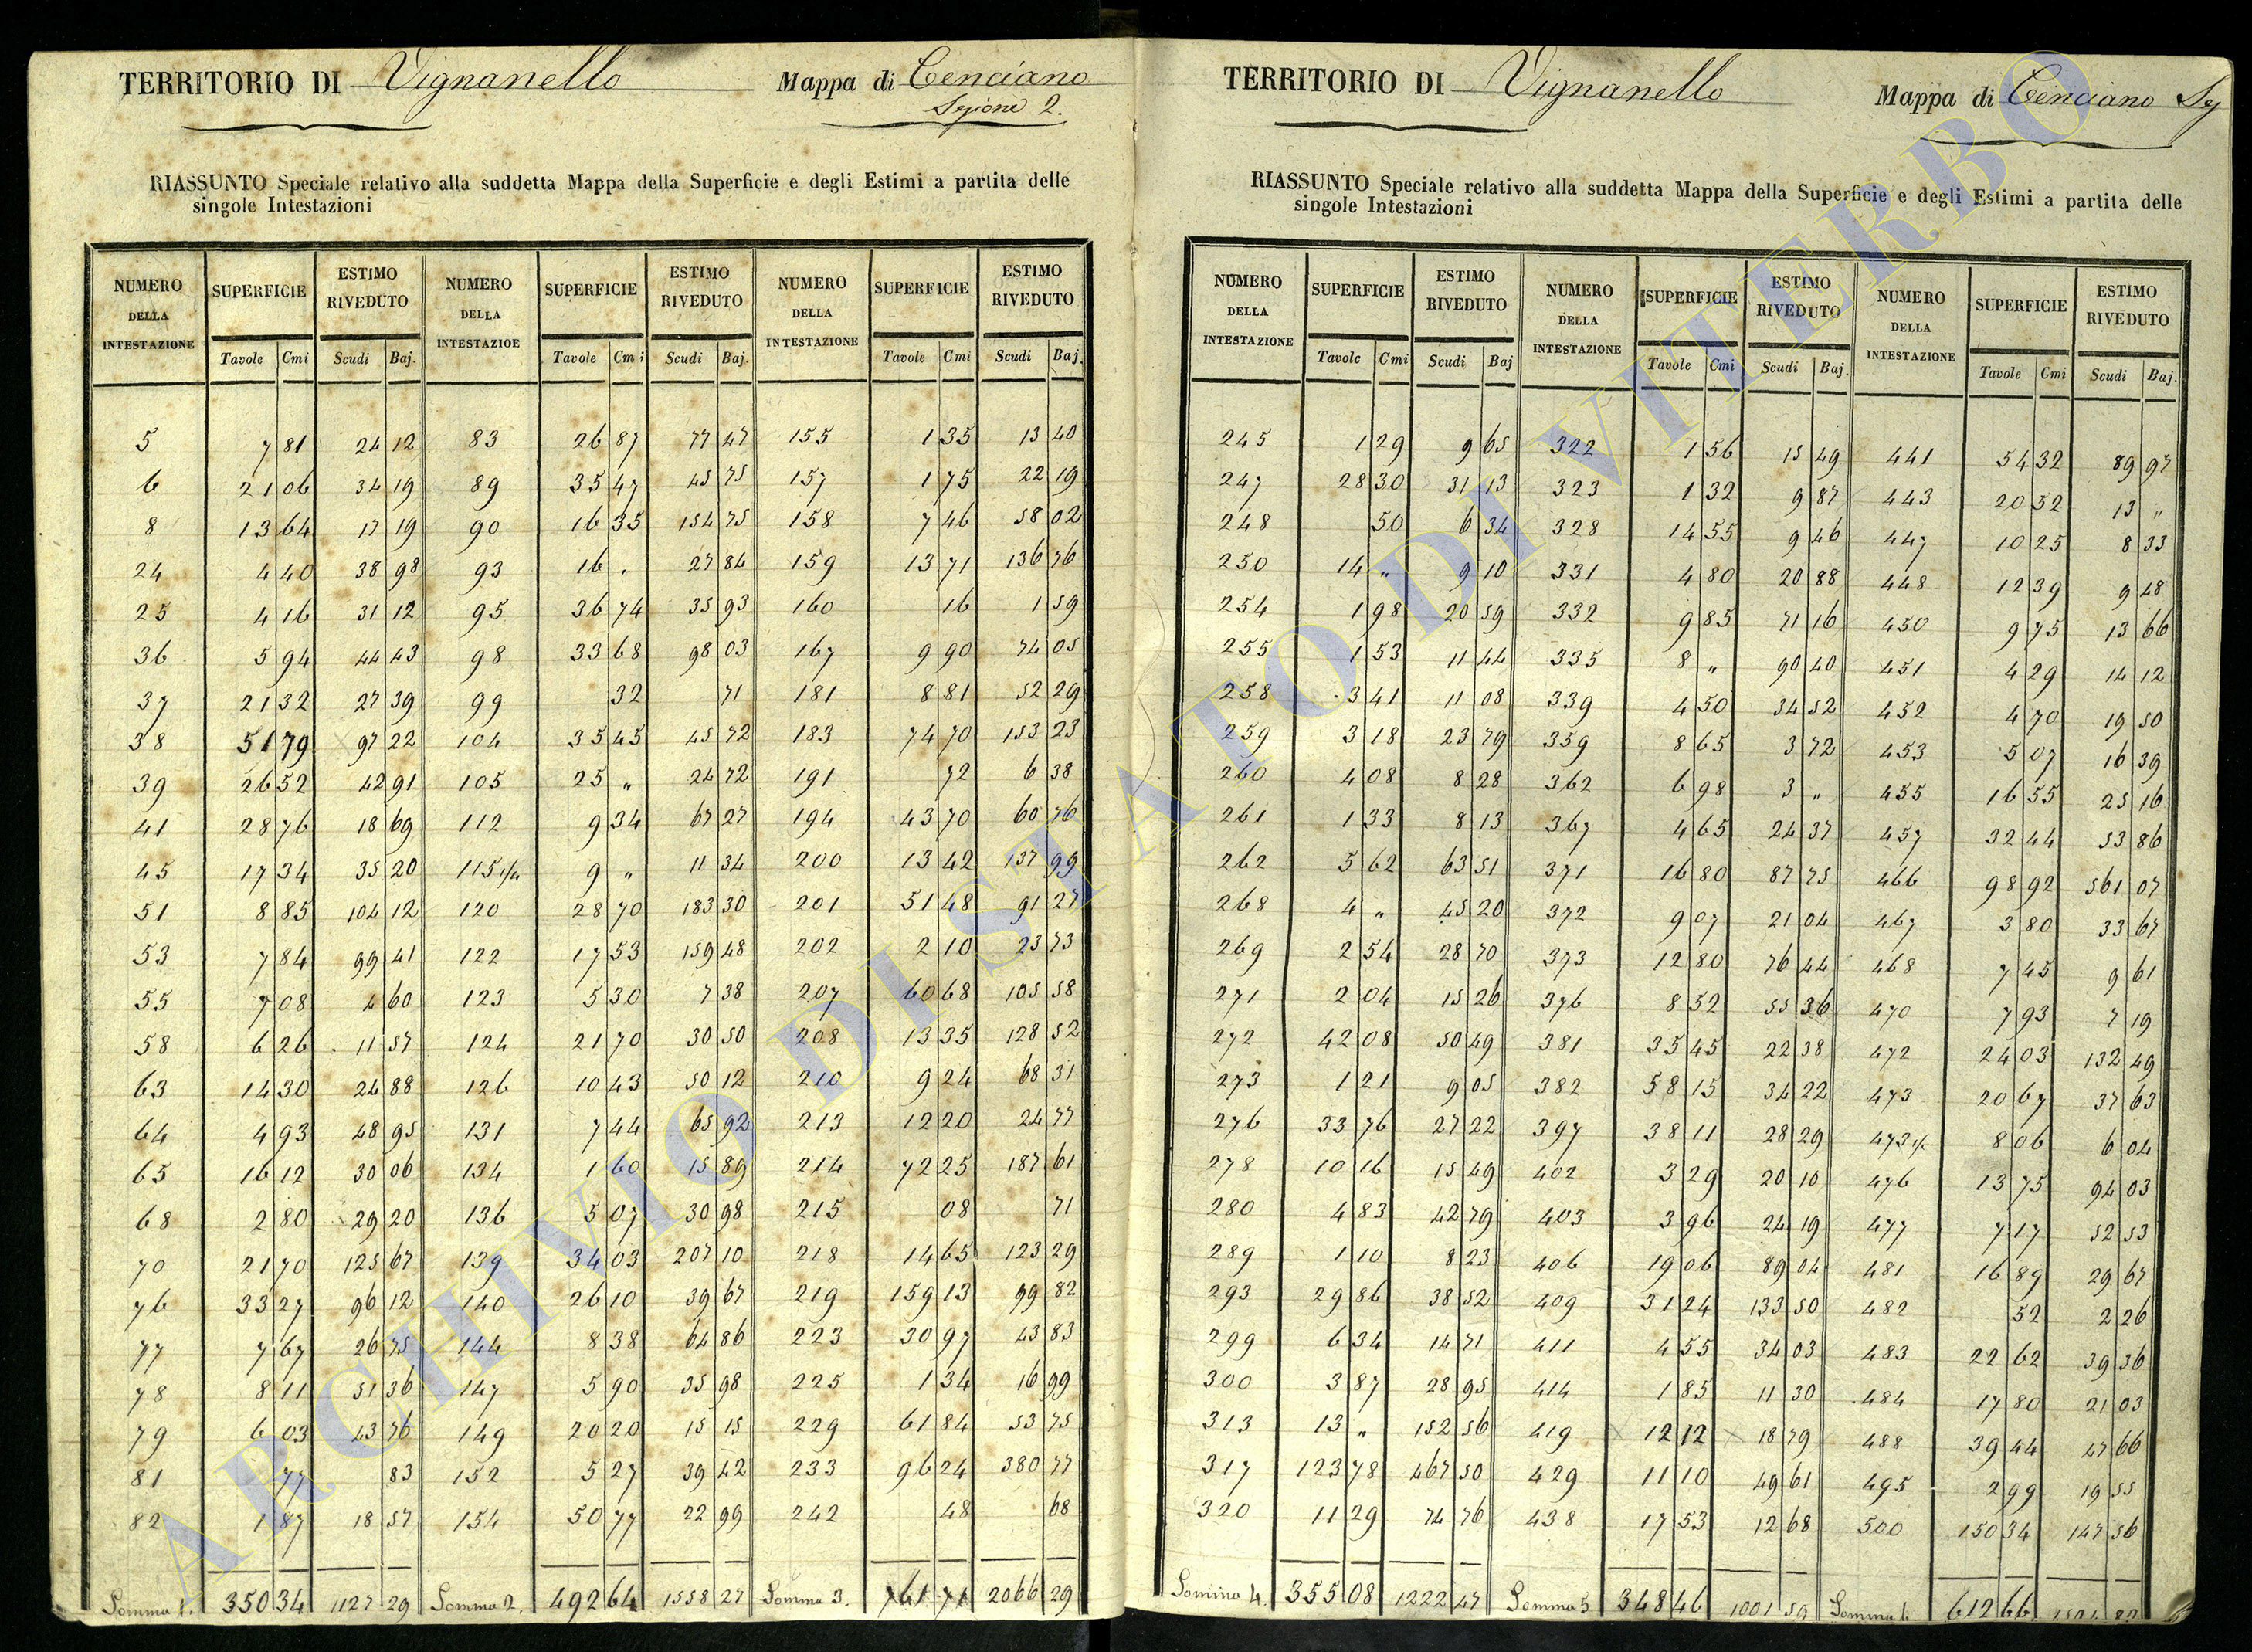 TERRITORIO DI Vignanello Mappa di Cenciano
Sezione 2.
RIASSUNTO Speciale relativo alla suddetta Mappa della Superficie e degli Estimi a partita delle
singole Intestazioni
NUMERO DELLA INTESTAZIONE SUPERFICIE ESTIMO RIVEDUTO NUMERO DELLA INTESTAZIOE SUPERFICIE ESTIMO RIVEDUTO NUMERO DELLA INTESTAZIONE SUPERFICIE ESTIMO RIVEDUTO
Tavole Cmi Scudi Baj. Tavole Cmi Scudi Baj. Tavole Cmi Scudi Baj.
5 7 81 24 12 83 26 87 77 47 155 1 35 13 40
6 21 06 34 19 89 35 47 45 75 157 1 75 22 19
8 13 64 17 19 90 16 35 154 75 158 7 46 58 02
24 4 40 38 98 93 16 . 27 84 159 13 71 136 76
25 4 16 31 12 95 36 74 35 93 160 16 1 59
36 5 94 44 43 98 33 68 98 03 167 9 90 74 05
37 21 32 27 39 99 32 71 181 8 81 52 29
38 51 79 97 22 104 35 45 45 72 183 74 70 153 23
39 26 52 42 91 105 25 „ 24 72 191 72 6 38
41 28 76 18 69 112 9 34 67 27 194 43 70 60 76
45 17 34 35 20 115 1/4 9 „ 11 34 200 13 42 137 99
51 8 85 104 12 120 28 70 183 30 201 51 48 91 27
53 7 84 99 41 122 17 53 159 48 202 2 10 23 73
55 7 08 4 60 123 5 30 7 38 207 60 68 105 58
58 6 26 11 57 124 21 70 30 50 208 13 35 128 52
63 14 30 24 88 126 10 43 50 12 210 9 24 68 31
64 4 93 48 95 131 7 44 65 92 213 12 20 24 77
65 16 12 30 06 134 1 60 15 89 214 72 25 187 61
68 2 80 29 20 136 5 07 30 98 215 08 71
70 21 70 125 67 139 34 03 207 10 218 14 65 123 29
76 33 27 96 12 140 26 10 39 67 219 159 13 99 82
77 7 67 26 75 144 8 38 64 86 223 30 97 43 83
78 8 11 51 36 147 5 90 35 98 225 1 34 16 99
79 6 03 43 76 149 20 20 15 15 229 61 84 53 75
81 77 83 152 5 27 39 42 233 96 24 380 77
82 1 87 18 57 154 50 77 22 99 242 48 68
Somma 1. 350 34 1127 29 Somma 2. 492 64 1558 27 Somma 3. 761 71 2066 29
TERRITORIO DI Vignanello Mappa di Cenciano Sez
RIASSUNTO Speciale relativo alla suddetta Mappa della Superficie e degli Estimi a partita delle
singole Intestazioni
NUMERO DELLA INTESTAZIONE SUPERFICIE ESTIMO RIVEDUTO NUMERO DELLA INTESTAZIONE SUPERFICIE ESTIMO RIVEDUTO NUMERO DELLA INTESTAZIONE SUPERFICIE ESTIMO RIVEDUTO
Tavole Cmi Scudi Baj Tavole Cmi Scudi Baj. Tavole Cmi Scudi Baj.
245 1 29 9 65 322 1 56 15 49 441 54 32 89 97
247 28 30 31 13 323 1 32 9 87 443 20 52 13 „
248 50 6 34 328 14 55 9 46 447 10 25 8 33
250 14 „ 9 10 331 4 80 20 88 448 12 39 9 48
254 1 98 20 59 332 9 85 71 16 450 9 75 13 66
255 1 53 11 44 335 8 „ 90 40 451 4 29 14 12
258 3 41 11 08 339 4 50 34 52 452 4 70 19 50
259 3 18 23 79 359 8 65 3 72 453 5 07 16 39
260 4 08 8 28 362 6 98 3 „ 455 16 55 25 16
261 1 33 8 13 367 4 65 24 37 457 32 44 53 86
262 5 62 63 51 371 16 80 87 75 466 98 92 561 07
268 4 „ 45 20 372 9 07 21 04 467 3 80 33 67
269 2 54 28 70 373 12 80 76 44 468 7 45 9 61
271 2 04 15 26 376 8 52 55 36 470 7 93 7 19
272 42 08 50 49 381 35 45 22 38 472 24 03 132 49
273 1 21 9 05 382 58 15 34 22 473 20 67 37 63
276 33 76 27 22 397 38 11 28 29 473 1/2 8 06 6 04
278 10 16 15 49 402 3 29 20 10 476 13 75 94 03
280 4 83 42 79 403 3 96 24 19 477 7 17 52 53
289 1 10 8 23 406 19 06 89 04 481 16 89 29 67
293 29 86 38 52 409 31 24 133 50 482 52 2 26
299 6 34 14 71 411 4 55 34 03 483 22 62 39 36
300 3 87 28 95 414 1 85 11 30 484 17 80 21 03
313 13 „ 152 56 419 12 12 18 79 488 39 44 47 66
317 123 78 467 50 429 11 10 49 61 495 2 99 19 55
320 11 29 74 76 438 17 53 12 68 500 150 34 147 56
Somma 4. 355 08 1222 47 Somma 5 348 46 1001 59 Somma 6 612 66
ARCHIVIO DI STATO DI VITERBO